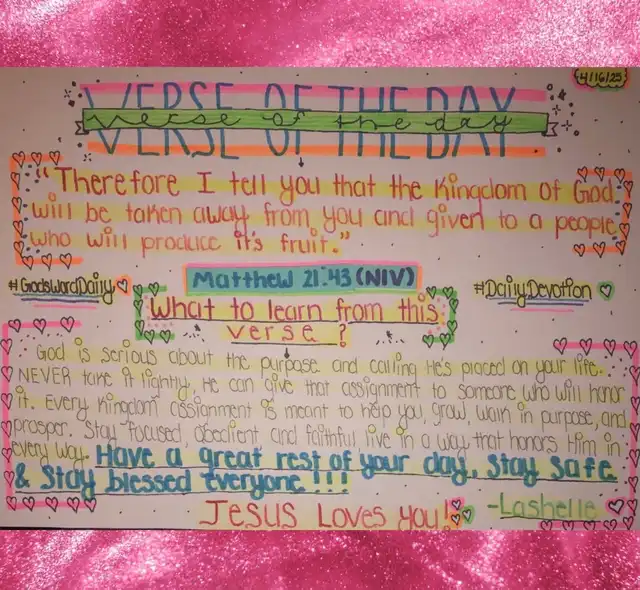 4/16/25
VERSE OF THE DAY
verse of the day
"Therefore I tell you that the Kingdom of God
will be taken away from you and given to a people
who will produce it's fruit."
Matthew 21:43 (NIV)
#GodswordDaily
#DailyDevotion
What to learn from this
verse?
God is serious about the purpose and calling He's placed on your life.
NEVER take it lightly, He can give that assignment to someone who will honor
it. Every Kingdom assignment is meant to help you, grow, walk in purpose, and
prosper. Stay focused, obedient and faithful, live in a way that honors Him in
every way. Have a great rest of your day, Stay Safe
& Stay blessed everyone!!!
Jesus Loves you!
-Lashelle